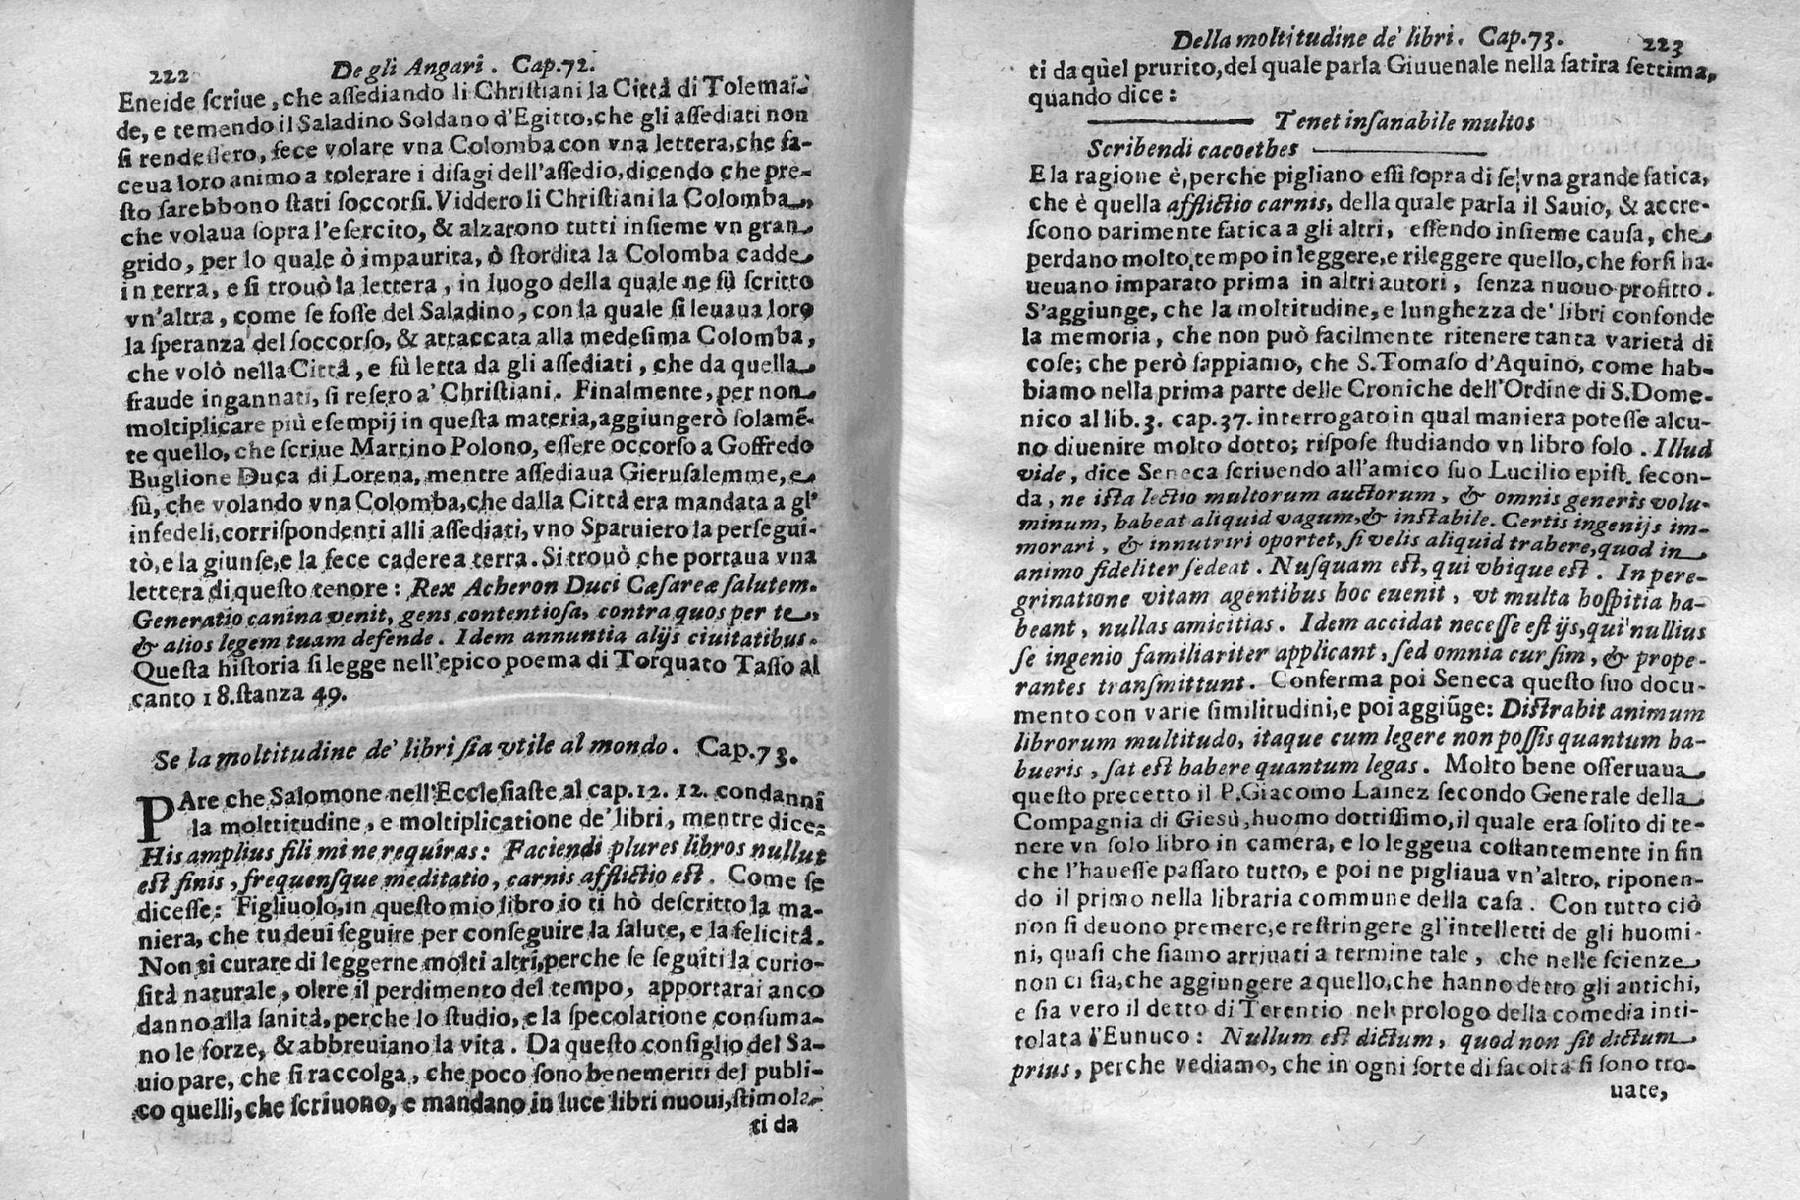 222 Degli Angari. Cap.72.
Eneide ſcriue, che aſſediando li Chriſtiani la Città di Tolemai-
de, e temendo il Saladino Soldano d'Egitto, che gli aſſediati non
ſi rendeſſero, fece volare vna Colomba con vna lettera, che fa-
ceua loro animo a tolerare i diſagi dell'aſſedio, dicendo che pre-
ſto ſarebbono ſtati ſoccorſi. Viddero li Chriſtiani la Colomba,
che volaua ſopra l'eſercito, & alzarono tutti inſieme vn gran
grido, per lo quale ò impaurita, ò ſtordita la Colomba cadde
in terra, e ſi trouò la lettera, in luogo della quale ne fù ſcritto
vn'altra, come ſe foſſe del Saladino, con la quale ſi leuaua loro
la ſperanza del ſoccorſo, & attaccata alla medeſima Colomba,
che volò nella Città, e fù letta da gli aſſediati, che da quella
fraude ingannati, ſi reſero a' Chriſtiani. Finalmente, per non
moltiplicare più eſempij in queſta materia, aggiungerò ſolamē-
te quello, che ſcriue Martino Polono, eſſere occorſo a Goffredo
Buglione Duca di Lorena, mentre aſſediaua Gieruſalemme, e
fù, che volando vna Colomba, che dalla Città era mandata a gl'
infedeli, corriſpondenti alli aſſediati, vno Sparuiero la perſegui-
tò, e la giunſe, e la fece cadere a terra. Si trouò che portaua vna
lettera di queſto tenore: Rex Acheron Duci Cæſareæ ſalutem.
Generatio canina venit, gens contentioſa, contra quos per te,
& alios legem tuam defende. Idem annuntia alijs ciuitatibus.
Queſta hiſtoria ſi legge nell'epico poema di Torquato Taſſo al
canto 18. ſtanza 49.
Se la moltitudine de' libri ſia vtile al mondo. Cap.73.
PAre che Salomone nell'Eccleſiaſte al cap. 12. 12. condanni
la molttitudine, e moltiplicatione de' libri, mentre dice:
His amplius fili mi ne requiras: Faciendi plures libros nullus
eſt finis, frequenſque meditatio, carnis afflictio eſt. Come ſe
diceſſe: Figliuolo, in queſto mio libro io ti hò deſcritto la ma-
niera, che tu deui ſeguire per conſeguire la ſalute, e la felicità.
Non ti curare di leggerne molti altri, perche ſe ſeguiti la curio-
ſità naturale, oltre il perdimento del tempo, apportarai anco
danno alla ſanità, perche lo ſtudio, e la ſpecolatione conſuma-
no le forze, & abbreuiano la vita. Da queſto conſiglio del Sa-
uio pare, che ſi raccolga, che poco ſono benemeriti del publi-
co quelli, che ſcriuono, e mandano in luce libri nuoui, ſtimola-
ti da
Della moltitudine de' libri. Cap.73. 223
ti da quel prurito, del quale parla Giuuenale nella ſatira ſettima,
quando dice:
Tenet inſanabile multos
Scribendi cacoethes
E la ragione è, perche pigliano eſſi ſopra di ſe vna grande fatica,
che è quella afflictio carnis, della quale parla il Sauio, & accre-
ſcono parimente fatica a gli altri, eſſendo inſieme cauſa, che
perdano molto tempo in leggere, e rileggere quello, che forſi ha-
ueuano imparato prima in altri autori, ſenza nuouo profitto.
S'aggiunge, che la moltitudine, e lunghezza de' libri confonde
la memoria, che non può facilmente ritenere tanta varietà di
coſe; che però ſappiamo, che S. Tomaſo d'Aquino, come hab-
biamo nella prima parte delle Croniche dell'Ordine di S. Dome-
nico al lib. 3. cap. 37. interrogato in qual maniera poteſſe alcu-
no diuenire molto dotto; riſpoſe ſtudiando vn libro ſolo. Illud
vide, dice Seneca ſcriuendo all'amico ſuo Lucilio epiſt. ſecon-
da, ne iſta lectio multorum auctorum, & omnis generis volu-
minum, habeat aliquid vagum, & inſtabile. Certis ingenijs im-
morari, & innutriri oportet, ſi velis aliquid trahere, quod in
animo fideliter ſedeat. Nuſquam eſt, qui vbique eſt. In pere-
grinatione vitam agentibus hoc euenit, vt multa hoſpitia ha-
beant, nullas amicitias. Idem accidat neceſſe eſt ijs, qui nullius
ſe ingenio familiariter applicant, ſed omnia curſim, & prope-
rantes tranſmittunt. Conferma poi Seneca queſto ſuo docu-
mento con varie ſimilitudini, e poi aggiūge: Diſtrahit animum
librorum multitudo, itaque cum legere non poſſis quantum ha-
bueris, ſat eſt habere quantum legas. Molto bene oſſeruaua
queſto precetto il P. Giacomo Lainez ſecondo Generale della
Compagnia di Gieſù, huomo dottiſſimo, il quale era ſolito di te-
nere vn ſolo libro in camera, e lo leggeua coſtantemente in fin
che l'haueſſe paſſato tutto, e poi ne pigliaua vn'altro, riponen-
do il primo nella libraria commune della caſa. Con tutto ciò
non ſi deuono premere, e reſtringere gl'intelletti de gli huomi-
ni, quaſi che ſiamo arriuati a termine tale, che nelle ſcienze
non ci ſia, che aggiungere a quello, che hanno detto gli antichi,
e ſia vero il detto di Terentio nel prologo della comedia inti-
tolata l'Eunuco: Nullum eſt dictum, quod non ſit dictum
prius, perche vediamo, che in ogni ſorte di facoltà ſi ſono tro-
uate,